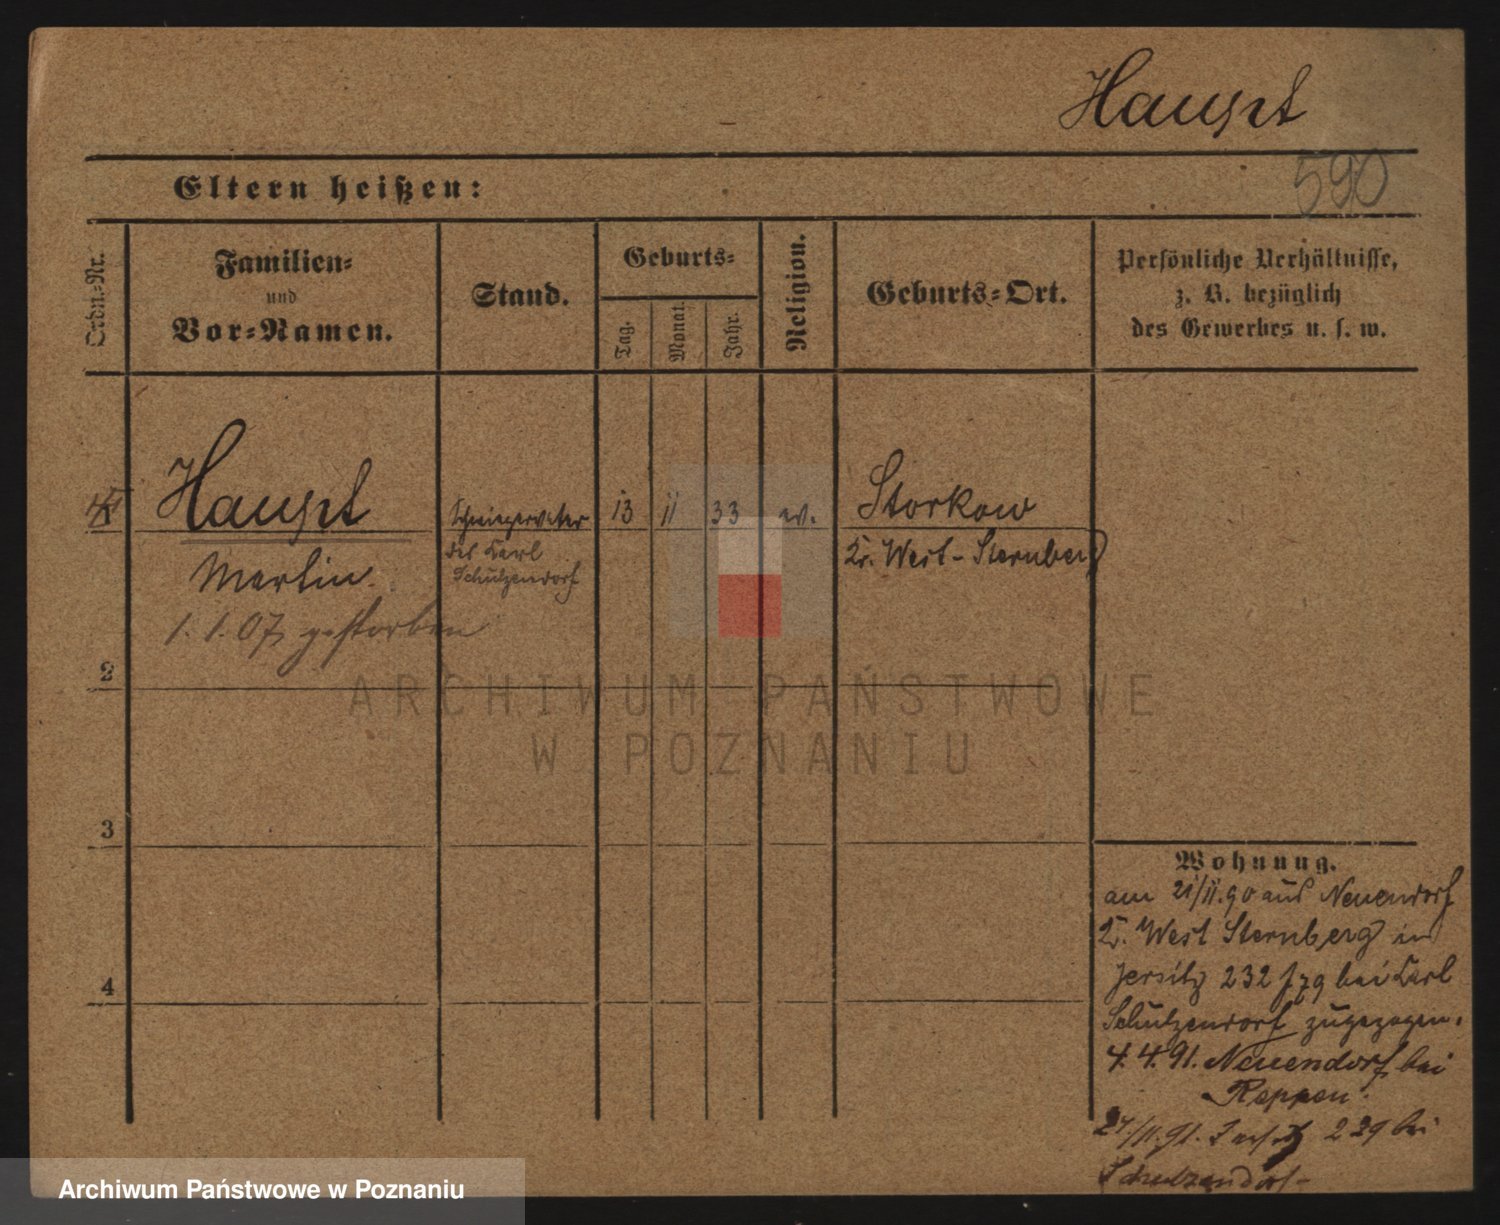 Haupt
590
Eltern heißen:
Ordn.-Nr.
Familien-
und
Vor-Namen.
Stand.
Geburts-
Tag.
Monat.
Jahr.
Religion.
Geburts-Ort.
Persönliche Verhältnisse,
z. B. bezüglich
des Gewerbes u. s. w.
Haupt
Martin.
1. 1. 07 gestorben
Schwiegervater
des Karl
Schulzendorf
13
11
33
ev.
Storkow
Kr. West-Sternberg
2
3
4
Wohnung.
am 21/11.90 aus Neuendorf
Kr. West Sternberg in
Jersitz 232 bei Karl
Schulzendorf zugezogen.
4. 4. 91. Neuendorf bei
Reppen.
27./11.91. 229 bei
Schulzendorf
ARCHIWUM PAŃSTWOWE
W POZNANIU
Archiwum Państwowe w Poznaniu